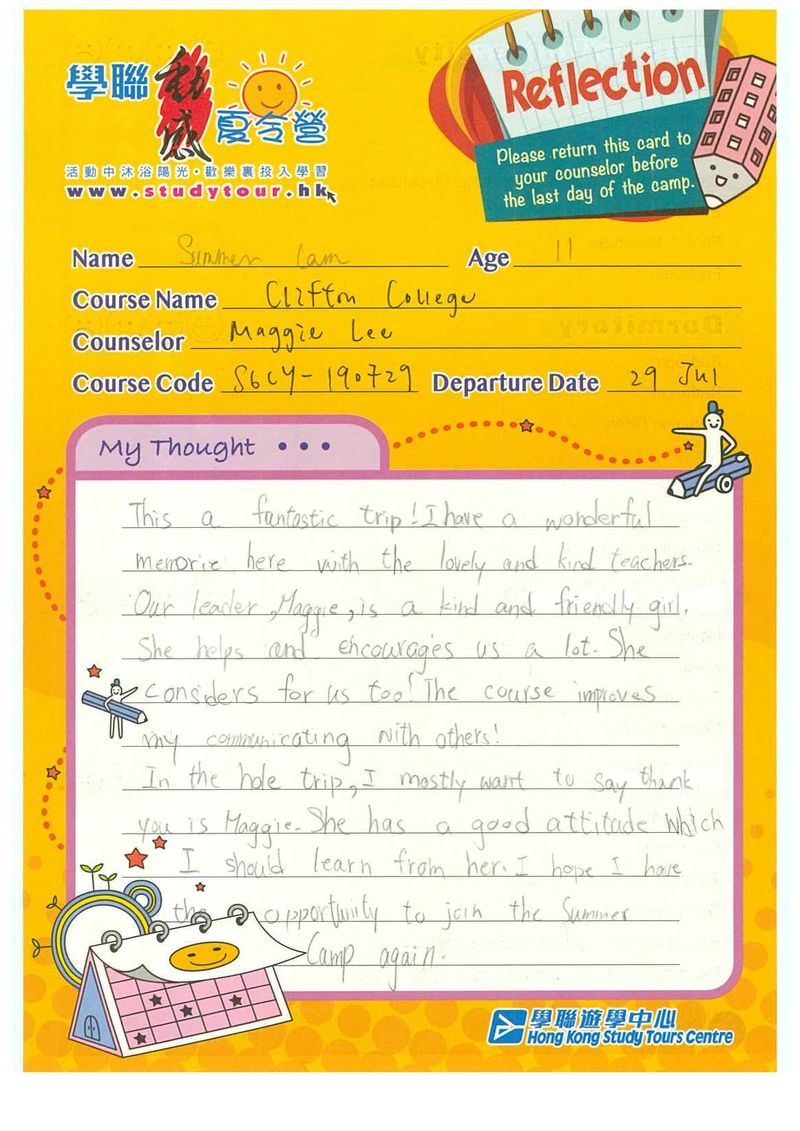 學聯 動感 夏令營
活動中沐浴陽光・歡樂裏投入學習
www.studytour.hk
Reflection
Please return this card to
your counselor before
the last day of the camp.
Name Summer Lam Age 11
Course Name Clifton College
Counselor Maggie Lee
Course Code SGCY-190729 Departure Date 29 Jul
My Thought •••
This a fantastic trip! I have a wonderful
memorie here with the lovely and kind teachers.
Our leader, Maggie, is a kind and friendly girl.
She helps and encourages us a lot. She
considers for us too! The course improves
my communicating with others!
In the hole trip, I mostly want to say thank
you is Maggie. She has a good attitude which
I should learn from her. I hope I have
the opportunity to join the Summer
Camp again.
學聯遊學中心
Hong Kong Study Tours Centre